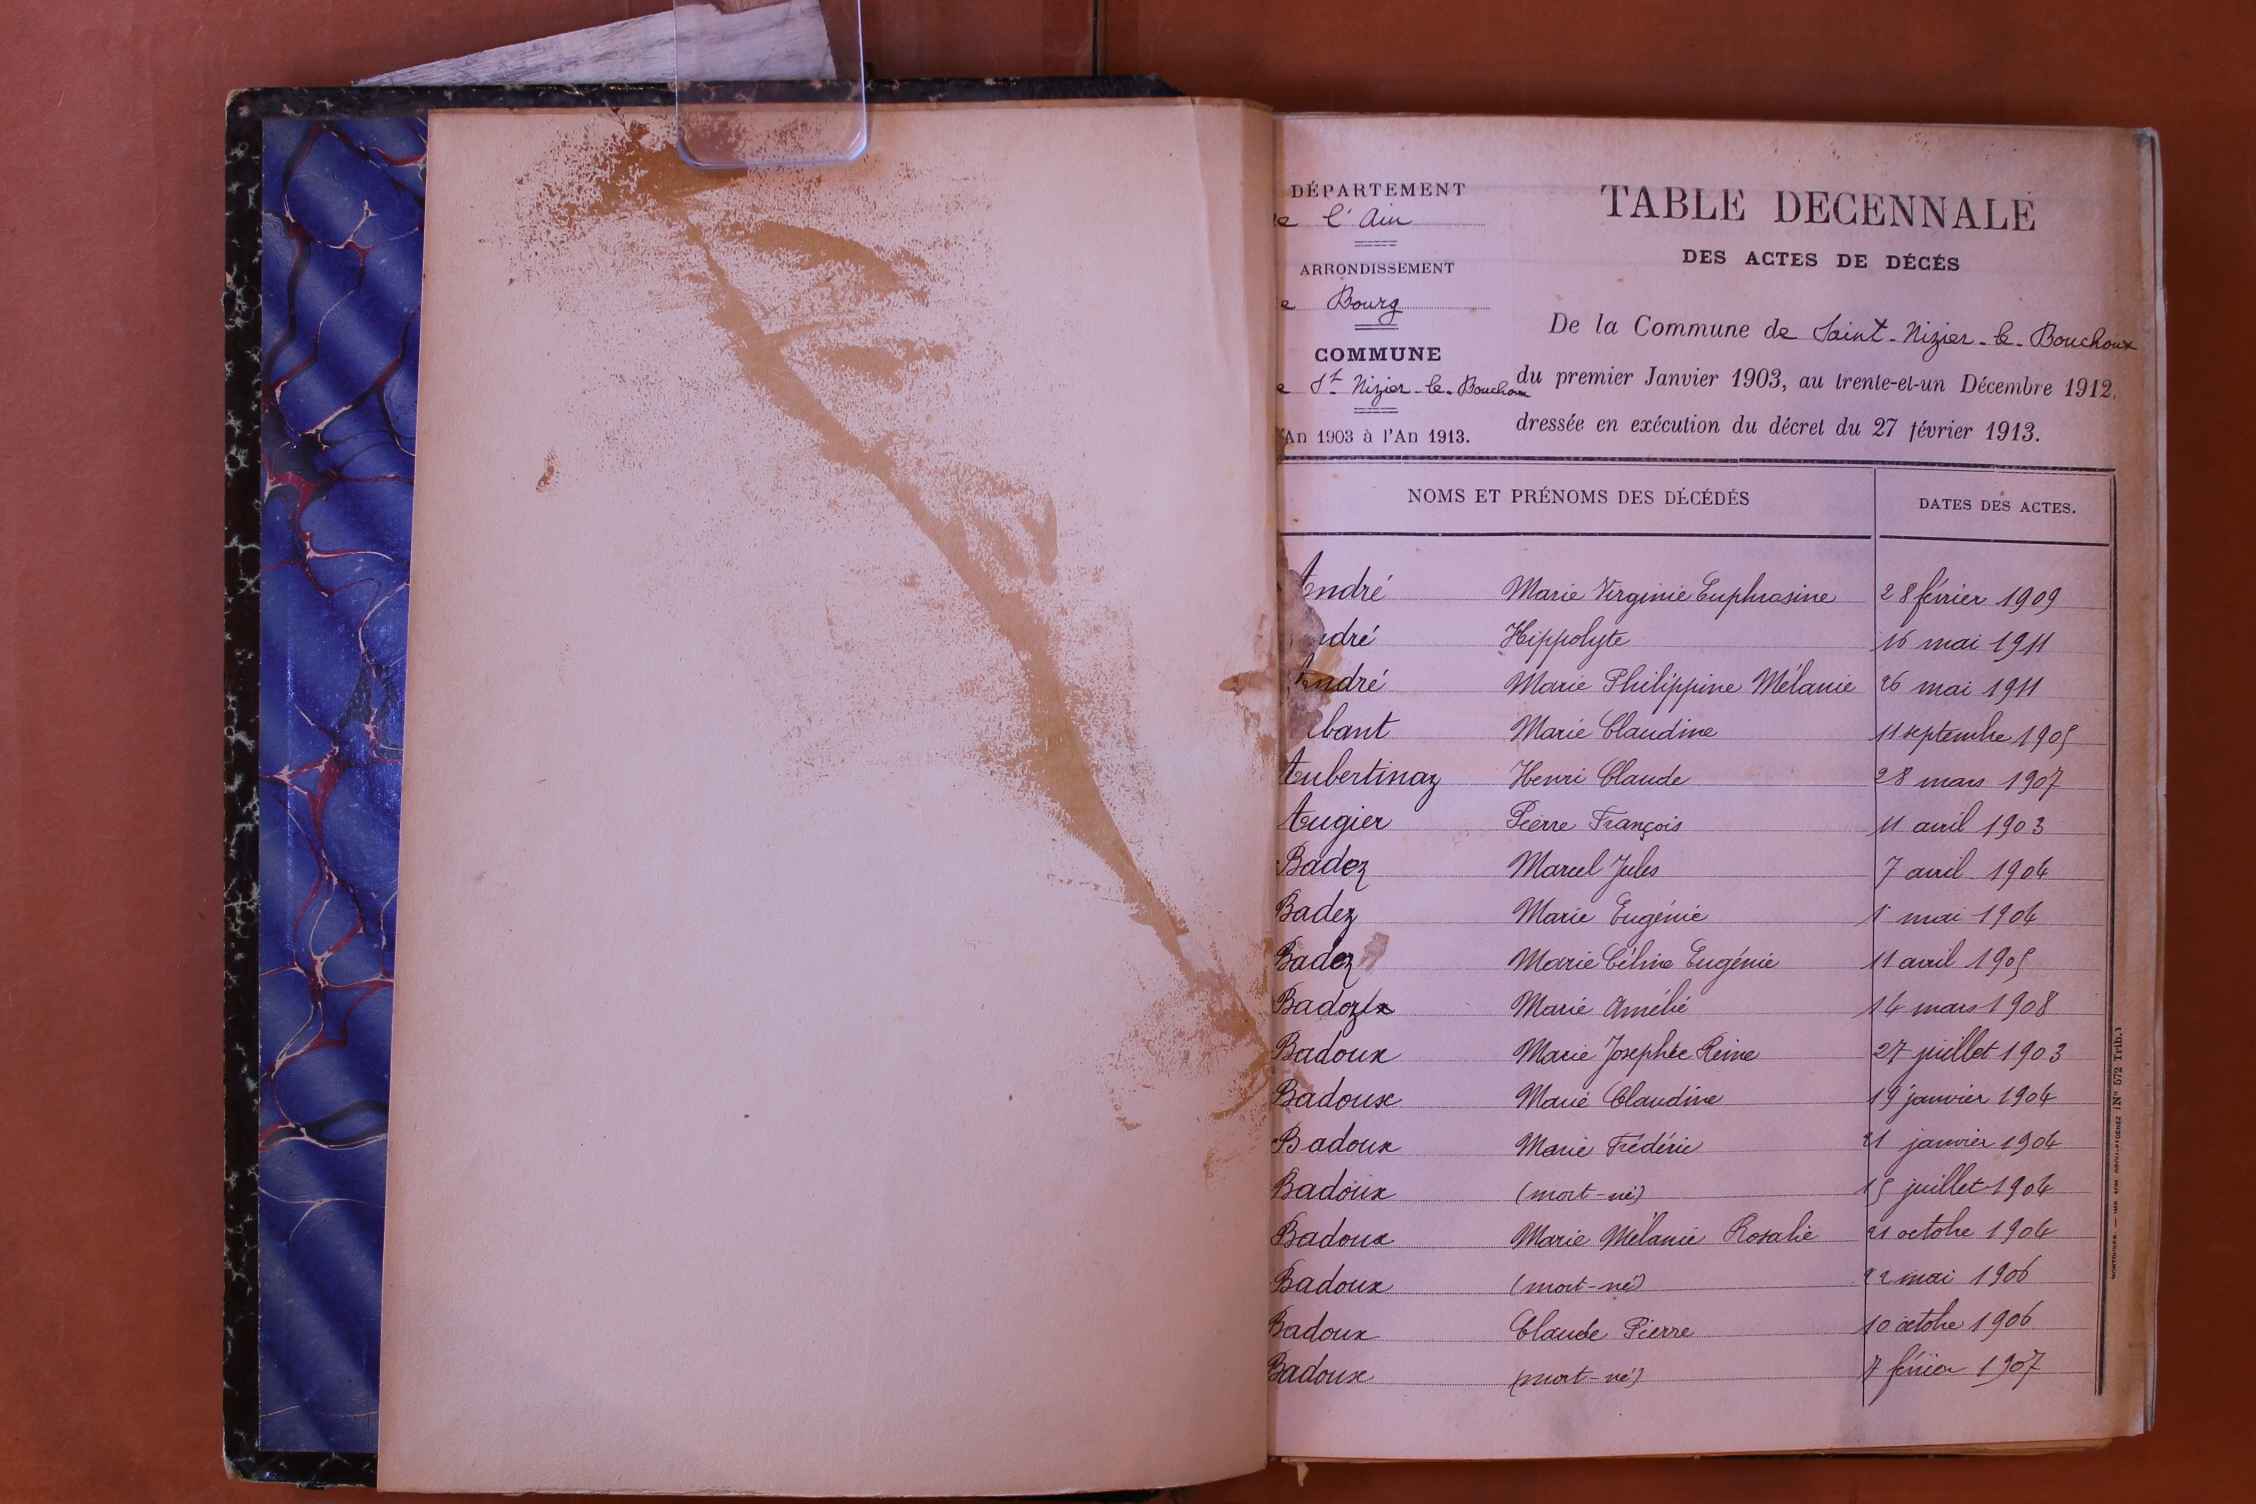 DÉPARTEMENT
de l'Ain
ARRONDISSEMENT
de Bourg
COMMUNE
de St Nizier-le-Bouchoux
An 1903 à l'An 1913.
TABLE DECENNALE
DES ACTES DE DÉCÉS
De la Commune de Saint-Nizier-le-Bouchoux
du premier Janvier 1903, au trente-et-un Décembre 1912,
dressée en exécution du décret du 27 février 1913.
NOMS ET PRÉNOMS DES DÉCÉDÉS DATES DES ACTES.
André Marie Virginie Euphrosine 28 février 1909
André Hippolyte 16 mai 1911
André Marie Philippine Mélanie 26 mai 1911
bant Marie Claudine 11 septembre 1905
Aubertinaz Henri Claude 28 mars 1907
Augier Pierre François 11 avril 1903
Badez Marcel Jules 7 avril 1904
Badez Marie Eugénie mai 1904
Badez Marie Céline Eugénie 11 avril 1905
Marie Amélie 14 mars 1908
Badoux Marie Josephte Reine 27 juillet 1903
Badoux Marie Claudine 19 janvier 1904
Badoux Marie Frédéric 21 janvier 1904
Badoux (mort-né) 15 juillet 1904
Badoux Marie Mélanie Rosalie 21 octobre 1904
Badoux (mort-né) 22 mai 1906
Badoux Claude Pierre 10 octobre 1906
Badoux (mort-né) 7 février 1907
(N° 572 Trib.)